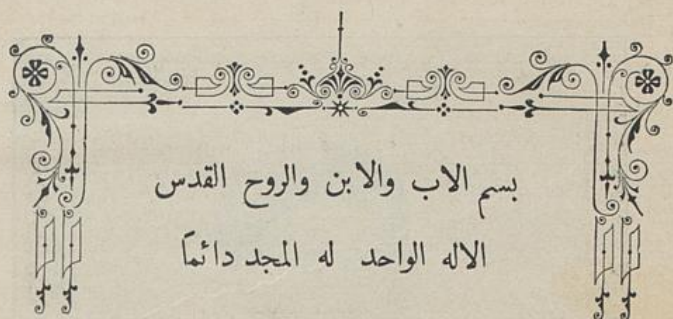 بسم الاب والابن والروح القدس
الاله الواحد له المجد دائماً